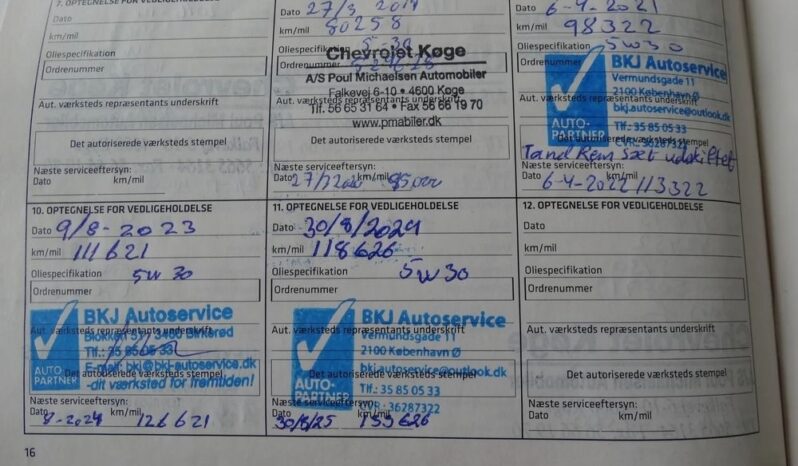 7. OPTEGNELSE FOR VEDLIGEHOLDELSE
Dato 27/3
km/mil 80258
Oliespecifikation 5-30
Ordrenummer
Chevrolet Køge
A/S Poul Michaelsen Automobiler
Falkevej 6-10 • 4600 Køge
Tlf. 56 65 31 64 • Fax 56 66 19 70
www.pmabiler.dk
Aut. værksteds repræsentants underskrift
Det autoriserede værksteds stempel
Næste serviceeftersyn:
Dato km/mil
Aut. værksteds repræsentants underskrift
Det autoriserede værksteds stempel
Næste serviceeftersyn:
Dato km/mil
Dato 6-4-2021
km/mil 98322
Oliespecifikation 5W30
Ordrenummer
BKJ Autoservice
Vermundsgade 11
2100 København Ø
bkj.autoservice@outlook.dk
Tlf.: 35 85 05 33
CVR.: 36287322
AUTO-PARTNER
Aut. værksteds repræsentants underskrift
Det autoriserede værksteds stempel
Tand Rem sæt udskiftet
Næste serviceeftersyn:
Dato km/mil
6-4-2022 113322
10. OPTEGNELSE FOR VEDLIGEHOLDELSE
Dato 9/8-2023
km/mil 111621
Oliespecifikation 5W30
Ordrenummer
BKJ Autoservice
Aut. værksteds repræsentants underskrift
Blokken 3460 Birkerød
Tlf.: 35 85 05 33
E-mail: bkj@bkj-autoservice.dk
-dit værksted for fremtiden!
AUTO-PARTNER
Det autoriserede værksteds stempel
Næste serviceeftersyn:
Dato 8-2024 km/mil 126621
11. OPTEGNELSE FOR VEDLIGEHOLDELSE
Dato 30/8/2024
km/mil 118626
Oliespecifikation 5W30
Ordrenummer
BKJ Autoservice
Aut. værksteds repræsentants underskrift
Vermundsgade 11
2100 København Ø
bkj.autoservice@outlook.dk
Det autoriserede værksteds stempel
Tlf.: 35 85 05 33
CVR.: 36287322
AUTO-PARTNER
Næste serviceeftersyn:
Dato 30/8/25 km/mil
12. OPTEGNELSE FOR VEDLIGEHOLDELSE
Dato
km/mil
Oliespecifikation
Ordrenummer
Aut. værksteds repræsentants underskrift
Det autoriserede værksteds stempel
Næste serviceeftersyn:
Dato km/mil
16